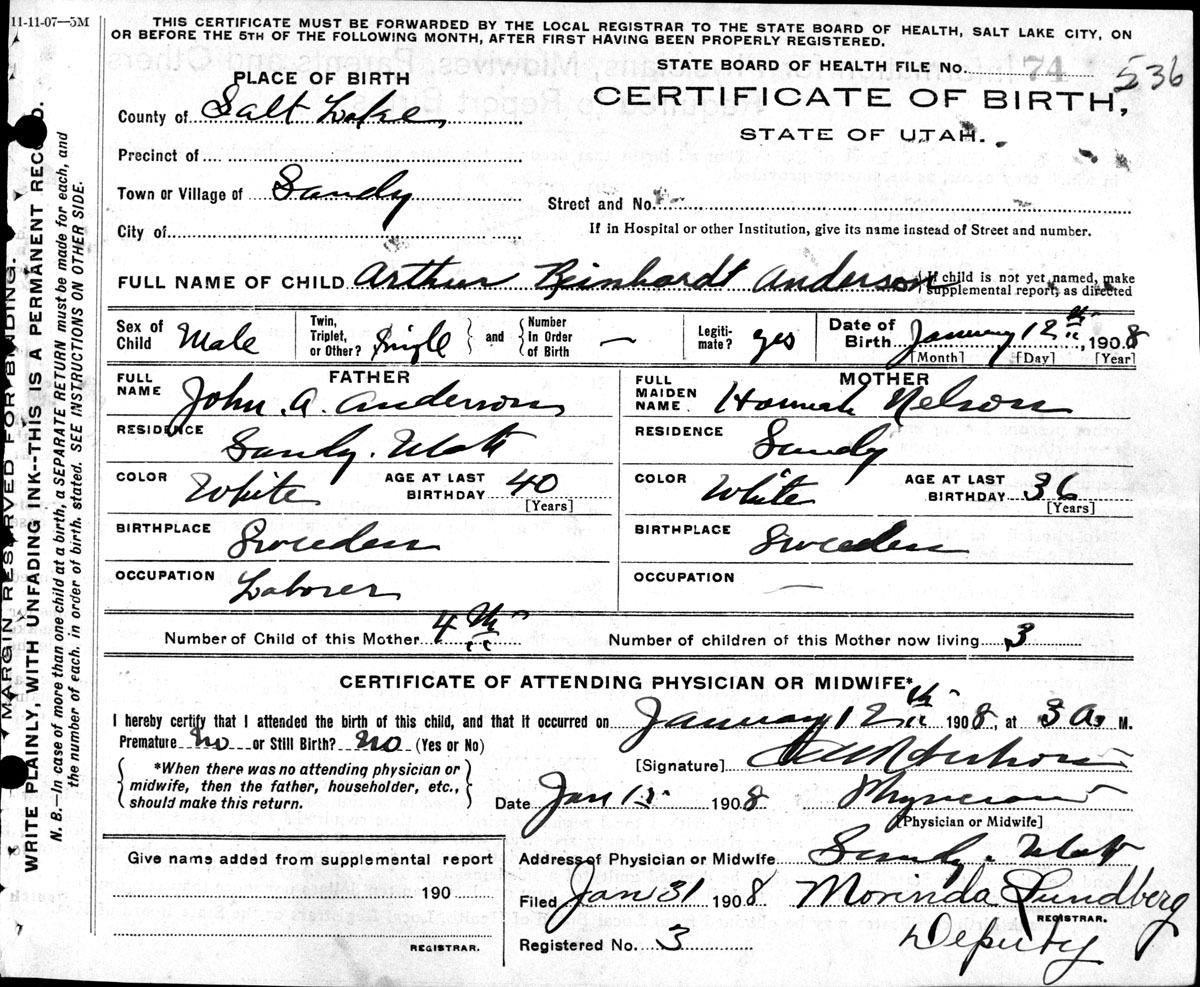 11-11-07—3M
THIS CERTIFICATE MUST BE FORWARDED BY THE LOCAL REGISTRAR TO THE STATE BOARD OF HEALTH, SALT LAKE CITY, ON
OR BEFORE THE 5TH OF THE FOLLOWING MONTH, AFTER FIRST HAVING BEEN PROPERLY REGISTERED.
PLACE OF BIRTH
STATE BOARD OF HEALTH FILE No. 74 536
County of Salt Lake
CERTIFICATE OF BIRTH,
STATE OF UTAH.
Precinct of
Town or Village of Sandy
Street and No.
City of
If in Hospital or other Institution, give its name instead of Street and number.
FULL NAME OF CHILD Arthur Reinhardt Anderson
If child is not yet named, make
supplemental report, as directed
Sex of Child Male
Twin, Triplet, or Other? Single and Number In Order of Birth —
Legitimate? yes
Date of Birth January 12th, 1908
[Month] [Day] [Year]
FATHER
FULL NAME John. A. Anderson
MOTHER
FULL MAIDEN NAME Hannah Nelson
RESIDENCE Sandy. Utah
RESIDENCE Sandy
COLOR White AGE AT LAST BIRTHDAY 40 [Years]
COLOR White AGE AT LAST BIRTHDAY 36 [Years]
BIRTHPLACE Sweeden
BIRTHPLACE Sweeden
OCCUPATION Laborer
OCCUPATION —
Number of Child of this Mother 4th
Number of children of this Mother now living 3
CERTIFICATE OF ATTENDING PHYSICIAN OR MIDWIFE*
I hereby certify that I attended the birth of this child, and that it occurred on January 12th 1908, at 3 A. M.
Premature No or Still Birth? No (Yes or No)
*When there was no attending physician or
midwife, then the father, householder, etc.,
should make this return.
[Signature]
Date Jan 1908 Physician
[Physician or Midwife]
Give name added from supplemental report
190
REGISTRAR.
Address of Physician or Midwife Sandy. Utah
Filed Jan 31 1908 Morinda Lundberg
REGISTRAR.
Registered No. 3 Deputy
MARGIN RESERVED FOR BINDING.
WRITE PLAINLY, WITH UNFADING INK--THIS IS A PERMANENT RECORD.
N. B.—In case of more than one child at a birth, a SEPARATE RETURN must be made for each, and
the number of each. in order of birth. stated. SEE INSTRUCTIONS ON OTHER SIDE.